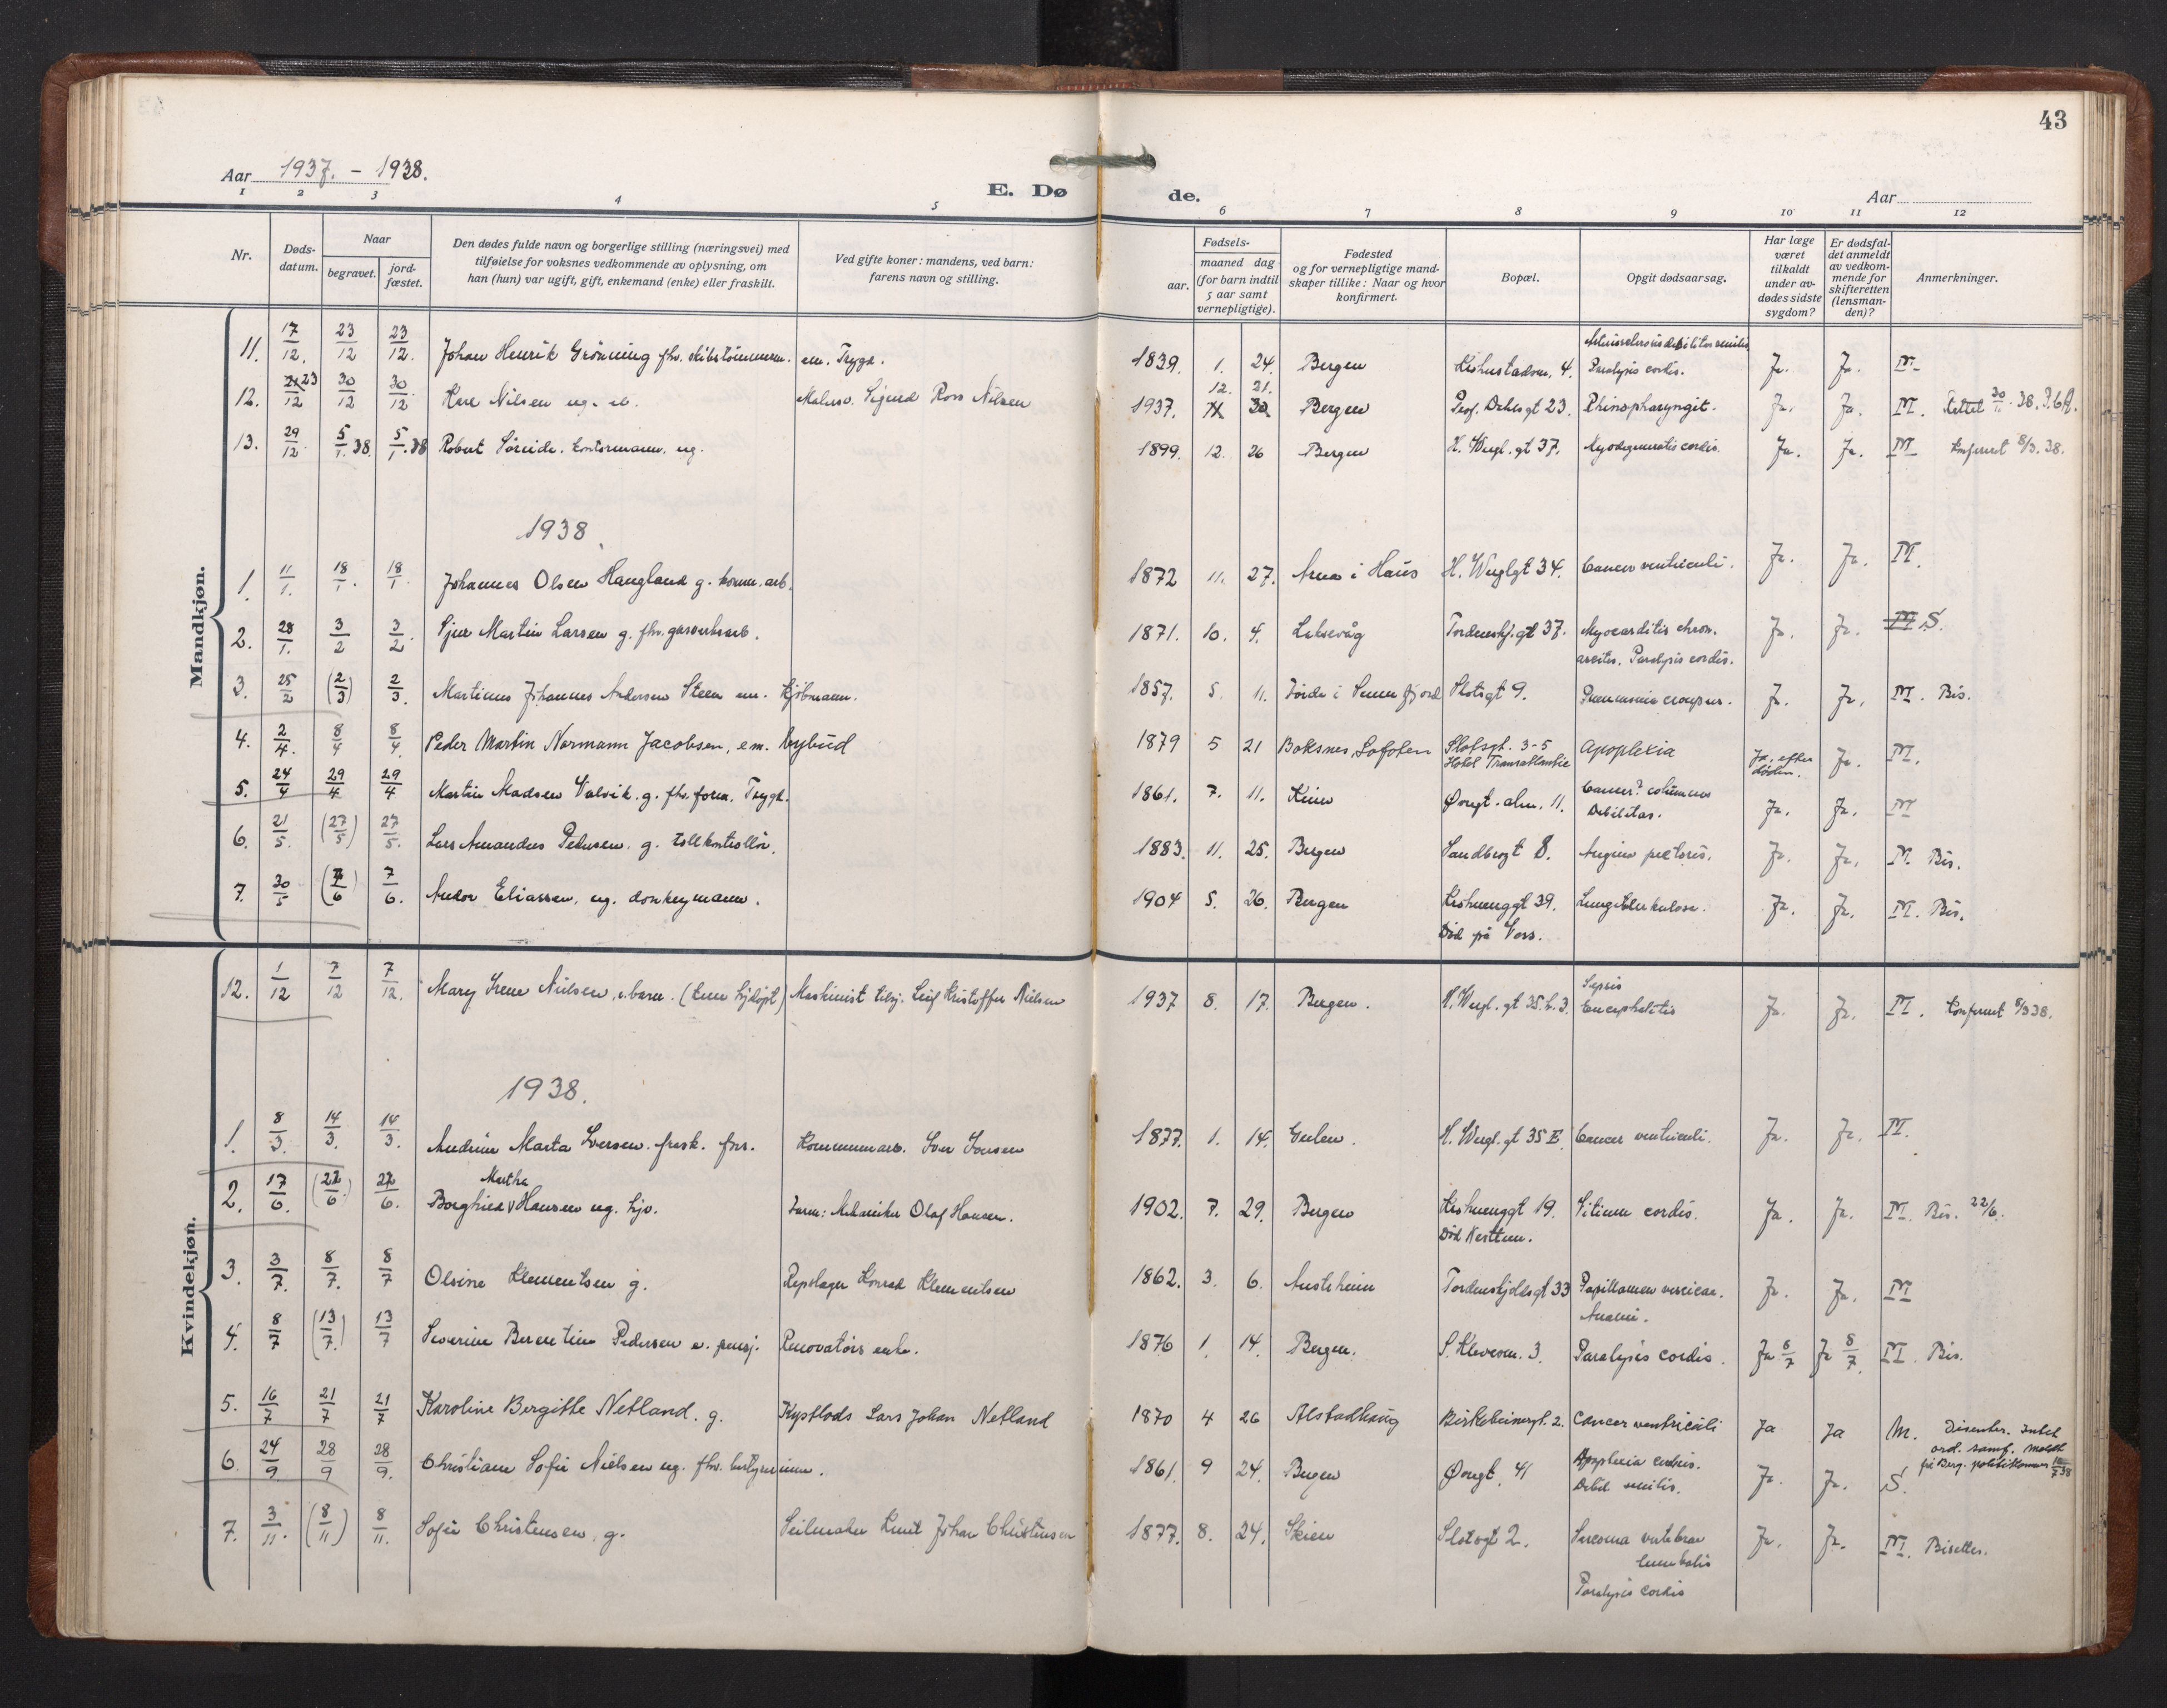 43
Aar 1937. - 1938.
E. Døde.
Aar
1 2 3 4 5 6 7 8 9 10 11 12
Nr.
Døds-datum.
Naar
begravet.
jord-fæstet.
Den dødes fulde navn og borgerlige stilling (næringsvei) med
tilføielse for voksnes vedkommende av oplysning, om
han (hun) var ugift, gift, enkemand (enke) eller fraskilt.
Ved gifte koner: mandens, ved barn:
farens navn og stilling.
Fødsels-
aar.
maaned dag
(for barn indtil
5 aar samt
vernepligtige).
Fødested
og for vernepligtige mand-
skaper tillike: Naar og hvor
konfirmert.
Bopæl.
Opgit dødsaarsag.
Har læge
været
tilkaldt
under av-
dødes sidste
sygdom?
Er dødsfal-
det anmeldt
av vedkom-
mende for
skifteretten
(lensman-
den)?
Anmerkninger.
Mandkjøn.
11. 17/12. 23/12 23/12. Johan Henrik Grönning fhv. skibstömmerm. em. Trygd. 1839. 1. 24. Bergen 4. Paralysis cordis. Ja. Ja. M
12. 23/12 30/12 30/12 Kåre Nilsen ug. Sigurd Ross Nilsen 1937. 12. 21. Bergen Prof. Dahls gt 23. Rhinopharyngit. Ja. Ja. M. Rettet 30/1. 38.
13. 29/12 5/1. 38. 5/1. 38 Robert Söreide. kontormann. ug. 1899. 12. 26 Bergen H. Wergl. gt 37. Myodegeneratio cordis. Ja. Ja. M Konferert 8/3. 38.
1938.
1. 11/1. 18/1. 18/1. Johannes Olsen Haugland g. komm. arb. 1872 11. 27. Arna i Haus H. Wergl gt 34. Cancer ventriculi. Ja. Ja. M.
2. 28/1. 3/2 3/2. Sjur Martin Larsen g. fhv. gasverksarb. 1871. 10. 4. Laksevåg Tordenskj. gt 37. Myocarditis chron.
Paralysis cordis. Ja. Ja. S.
3. 25/2 (2/3) 2/3. Martinus Johannes Andersen Steen em. Kjöbmann. 1857. 5. 11. Förde i Sunnfjord Slotsgt 9. Pneumonia crouposa. Ja. Ja. M. Bis.
4. 2/4. 8/4 8/4. Peder Martin Normann Jacobsen, em. bybud 1879 5 21 Boksnes, Lofoten Slotsgt. 3-5
Hotel Transatlantic Apoplexia Ja, efter
döden. Ja. M.
5. 24/4 29/4 29/4 Martin Madsen Valvik. g. fhv. form. Trygd. 1861. 7. 11. Kinn Øvregt. alm. 11. Cancer? columna
Debilitas. Ja. Ja. M
6. 21/5. (27/5) 27/5. Lars Amandus Pedersen. g. tollkontrollör. 1883. 11. 25. Bergen Sandbrogt 8. Angina pectoris. Ja. Ja. M. Bis.
7. 30/5 (7/6) 7/6. Andor Eliassen, ug. donkeymann. 1904 5. 26. Bergen 39. Lungetuberkulose. Ja. Ja. M. Bis.
Död på Voss.
Kvindekjøn.
12. 1/12 7/12 7/12. Mary Irene Nielsen, barn. Maskinist Leif Kristoffer Nielsen 1937 8. 17. Bergen. H. Wergl. gt 35. b. 3. Sepsis
Encephalitis Ja. Ja. M. Konferert 8/3 38.
1938.
1. 8/3. 14/3. 14/3. Andrine Marta Iversen. frask. Kommunearb. Iver Iversen 1877. 1. 14. Gulen. H. Wergl. gt 35 E. Cancer ventriculi. Ja. Ja. M.
Martha
2. 17/6. (22/6) 22/6. Borghild Hansen ug. hjv. Farm: Mekaniker Olaf Hansen. 1902. 7. 29. Bergen 19. Vitium cordis. Ja. Ja. M. Bis. 22/6.
Död Nesttun.
3. 3/7. 8/7. 8/7 Olsine Klementsen g. Repslager Konrad Klementsen 1862. 3. 6. Austrheim Tordenskjoldsgt 33 Papillomen vesicae.
Anæmi. Ja. Ja. M
4. 8/7 (13/7.) 13/7 Severine Berentine Pedersen e. pensj. Renovatörs enke. 1876 1. 14. Bergen. 3. Paralysis cordis. Ja 6/7 Ja 8/7 M. Bis.
5. 16/7 21/7 21/7 Karoline Bergitte Netland. g. Kystlods Lars Johan Netland 1870 4 26 Alstadhaug Birkebeinergt. 2. Cancer ventriculi Ja Ja M. Dissenter. Intet
ord. samf. meldt
på Berg. politikammer
6. 24/9 28/9 28/9. Christiane Sofie Nielsen ug. fhv. bestyrerinne. 1861. 9 24. Bergen Øvregt. 41 Apoplexia cerebri.
Debil. senilis. Ja. Ja. S.
7. 3/11. (8/11) 8/11. Sofie Christensen, g. Seilmaker Knut Johan Christensen 1877. 8. 24. Skien Slotsgt 2. Sarcoma vertebrae
lumbalis
Paralysis cordis Ja. Ja. M. Bisettes.